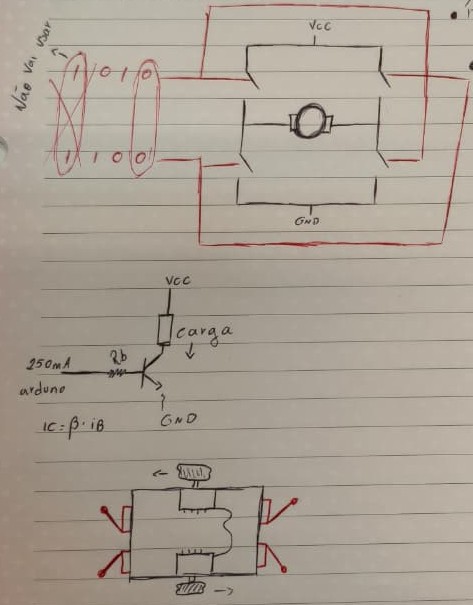 VCC
Não Vai usar
1 0 1 0
1 1 0 0
GND
VCC
carga
250mA
Rb
arduno
GND
IC = β · iB